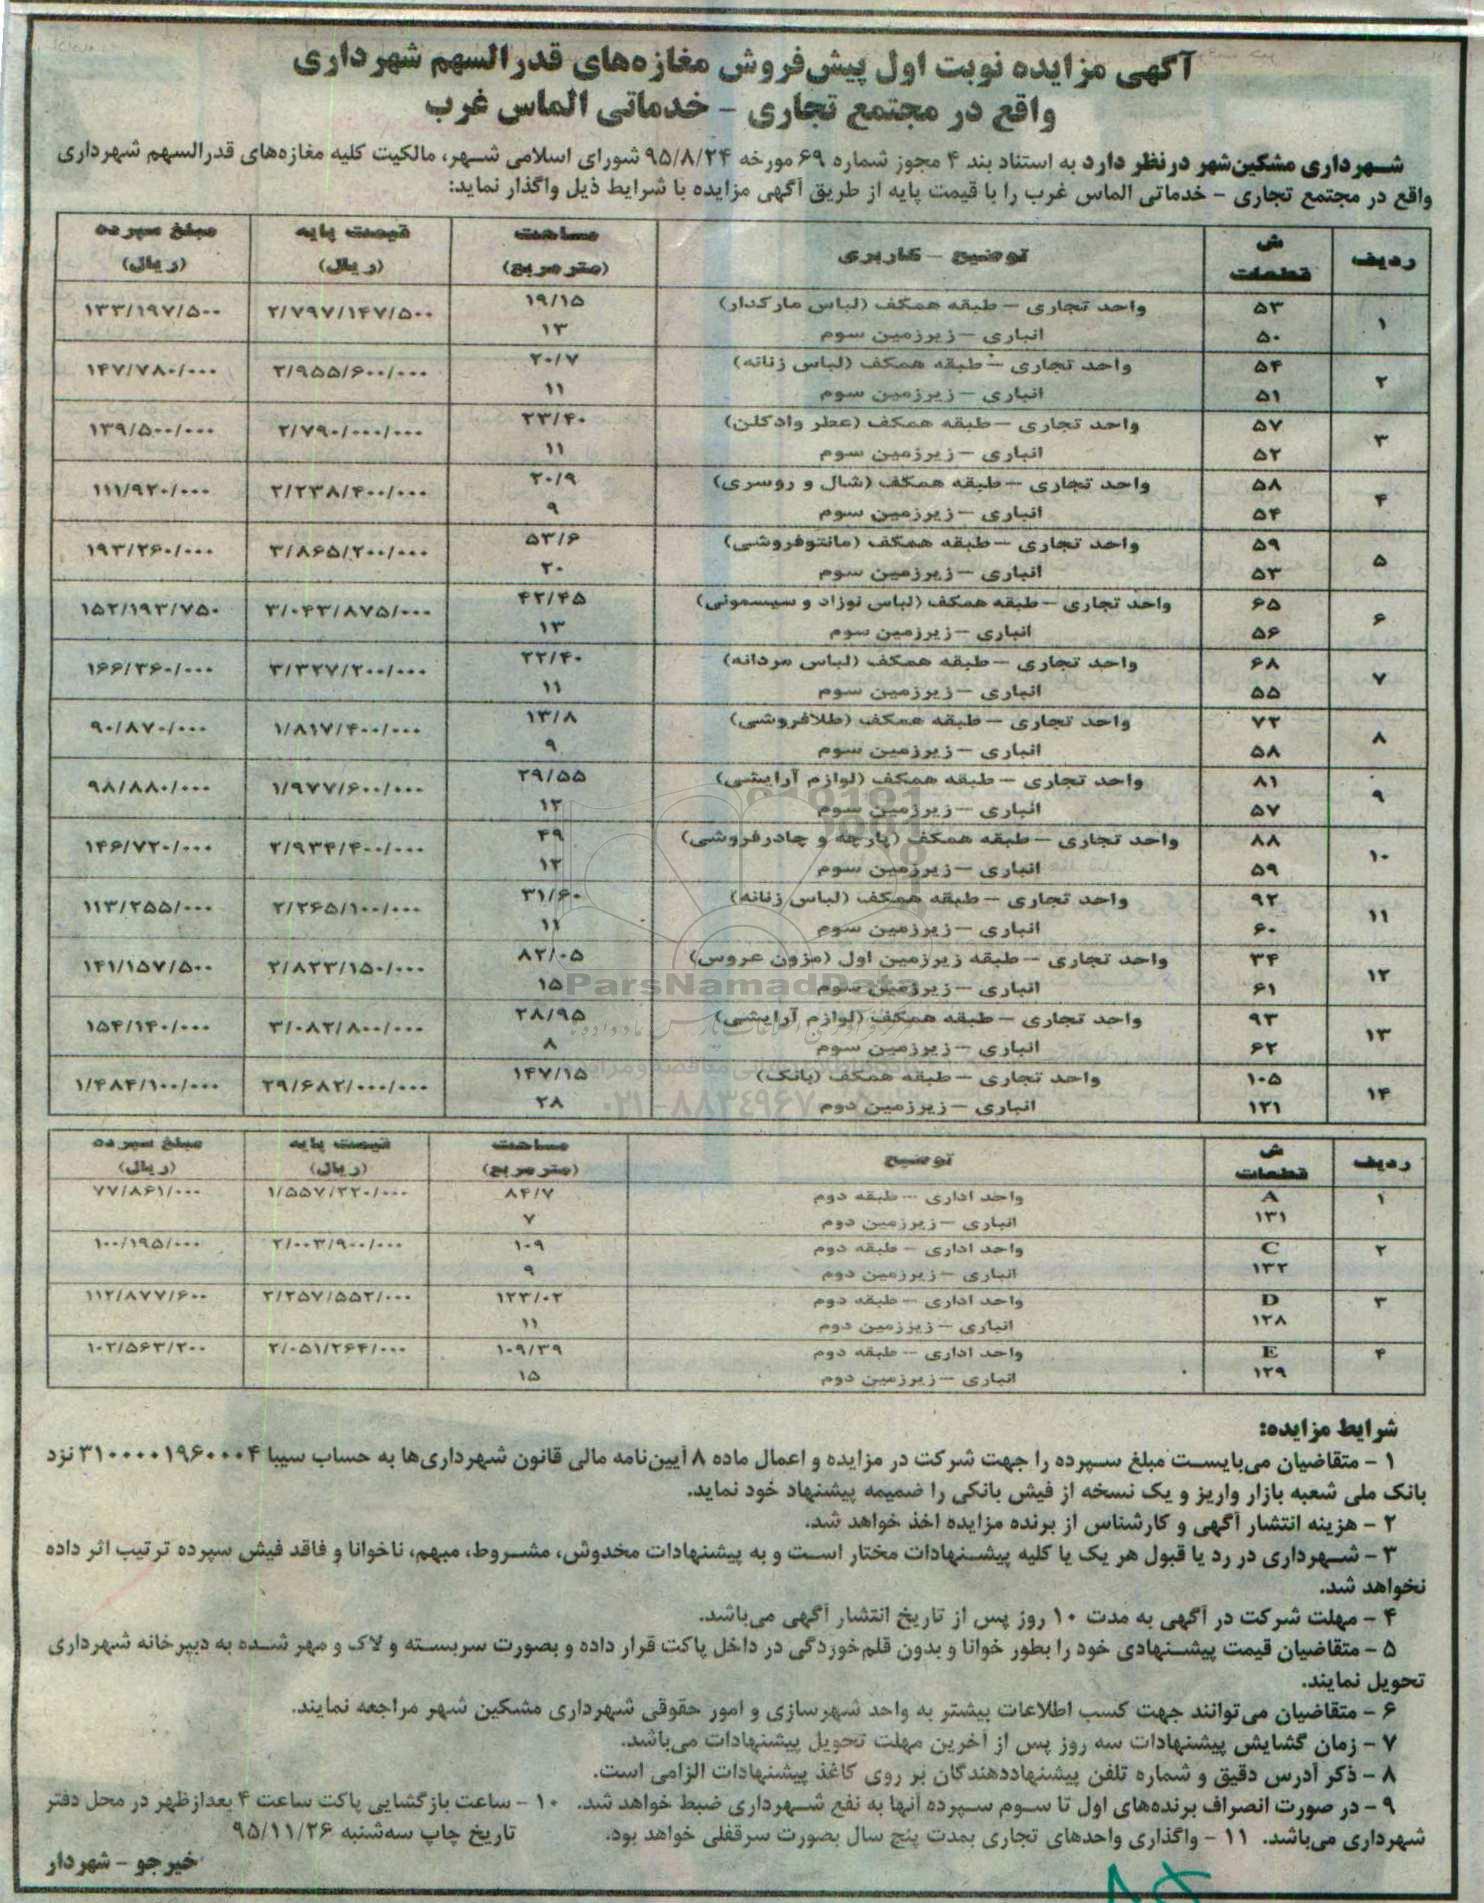 آگهی مزایده نوبت اول پیش‌فروش مغازه‌های قدرالسهم شهرداری
واقع در مجتمع تجاری - خدماتی الماس غرب
شهرداری مشکین‌شهر درنظر دارد به استناد بند ۴ مجوز شماره ۶۹ مورخه ۹۵/۸/۲۴ شورای اسلامی شهر، مالکیت کلیه مغازه‌های قدرالسهم شهرداری
واقع در مجتمع تجاری - خدماتی الماس غرب را با قیمت پایه از طریق آگهی مزایده با شرایط ذیل واگذار نماید:
ردیف ش قطعات توضیح - کاربری مساحت (مترمربع) قیمت پایه (ریال) مبلغ سپرده (ریال)
۱ ۵۳ واحد تجاری - طبقه همکف (لباس مارکدار) ۱۹/۱۵ ۲/۷۹۷/۱۴۷/۵۰۰ ۱۳۳/۱۹۷/۵۰۰
۵۰ انباری - زیرزمین سوم ۱۳
۲ ۵۴ واحد تجاری - طبقه همکف (لباس زنانه) ۲۰/۷ ۲/۹۵۵/۶۰۰/۰۰۰ ۱۴۷/۷۸۰/۰۰۰
۵۱ انباری - زیرزمین سوم ۱۱
۳ ۵۷ واحد تجاری - طبقه همکف (عطر وادکلن) ۲۳/۴۰ ۲/۷۹۰/۰۰۰/۰۰۰ ۱۳۹/۵۰۰/۰۰۰
۵۲ انباری - زیرزمین سوم ۱۱
۴ ۵۸ واحد تجاری - طبقه همکف (شال و روسری) ۲۰/۹ ۲/۲۳۸/۴۰۰/۰۰۰ ۱۱۱/۹۲۰/۰۰۰
۵۴ انباری - زیرزمین سوم ۹
۵ ۵۹ واحد تجاری - طبقه همکف (مانتوفروشی) ۵۳/۶ ۳/۸۶۵/۲۰۰/۰۰۰ ۱۹۳/۲۶۰/۰۰۰
۵۳ انباری - زیرزمین سوم ۲۰
۶ ۶۵ واحد تجاری - طبقه همکف (لباس نوزاد و سیسمونی) ۴۲/۴۵ ۳/۰۴۳/۸۷۵/۰۰۰ ۱۵۲/۱۹۳/۷۵۰
۵۶ انباری - زیرزمین سوم ۱۳
۷ ۶۸ واحد تجاری - طبقه همکف (لباس مردانه) ۲۲/۴۰ ۳/۳۲۷/۲۰۰/۰۰۰ ۱۶۶/۳۶۰/۰۰۰
۵۵ انباری - زیرزمین سوم ۱۱
۸ ۷۲ واحد تجاری - طبقه همکف (طلافروشی) ۱۳/۸ ۱/۸۱۷/۴۰۰/۰۰۰ ۹۰/۸۷۰/۰۰۰
۵۸ انباری - زیرزمین سوم ۹
۹ ۸۱ واحد تجاری - طبقه همکف (لوازم آرایشی) ۲۹/۵۵ ۱/۹۷۷/۶۰۰/۰۰۰ ۹۸/۸۸۰/۰۰۰
۵۷ انباری - زیرزمین سوم ۱۲
۱۰ ۸۸ واحد تجاری - طبقه همکف (پارچه و چادرفروشی) ۴۹ ۲/۹۳۴/۴۰۰/۰۰۰ ۱۴۶/۷۲۰/۰۰۰
۵۹ انباری - زیرزمین سوم ۱۲
۱۱ ۹۲ واحد تجاری - طبقه همکف (لباس زنانه) ۳۱/۶۰ ۲/۲۶۵/۱۰۰/۰۰۰ ۱۱۳/۲۵۵/۰۰۰
۶۰ انباری - زیرزمین سوم ۱۱
۱۲ ۳۴ واحد تجاری - طبقه زیرزمین اول (مزون عروس) ۸۲/۰۵ ۲/۸۲۳/۱۵۰/۰۰۰ ۱۴۱/۱۵۷/۵۰۰
۶۱ انباری - زیرزمین سوم ۱۵
۱۳ ۹۳ واحد تجاری - طبقه همکف (لوازم آرایشی) ۲۸/۹۵ ۳/۰۸۲/۸۰۰/۰۰۰ ۱۵۴/۱۴۰/۰۰۰
۶۲ انباری - زیرزمین سوم ۸
۱۴ ۱۰۵ واحد تجاری - طبقه همکف (بانک) ۱۴۷/۱۵ ۲۹/۶۸۲/۰۰۰/۰۰۰ ۱/۴۸۴/۱۰۰/۰۰۰
۱۲۱ انباری - زیرزمین دوم ۲۸
ParsNamadData
۰۲۱-۸۸۳۴۹۶۷۰
ردیف ش قطعات توضیح مساحت (مترمربع) قیمت پایه (ریال) مبلغ سپرده (ریال)
۱ A واحد اداری - طبقه دوم ۸۴/۷ ۱/۵۵۷/۲۲۰/۰۰۰ ۷۷/۸۶۱/۰۰۰
۱۳۱ انباری - زیرزمین دوم ۷
۲ C واحد اداری - طبقه دوم ۱۰۹ ۲/۰۰۳/۹۰۰/۰۰۰ ۱۰۰/۱۹۵/۰۰۰
۱۳۲ انباری - زیرزمین دوم ۹
۳ D واحد اداری - طبقه دوم ۱۲۳/۰۲ ۲/۲۵۷/۵۵۲/۰۰۰ ۱۱۲/۸۷۷/۶۰۰
۱۲۸ انباری - زیرزمین دوم ۱۱
۴ E واحد اداری - طبقه دوم ۱۰۹/۳۹ ۲/۰۵۱/۲۶۴/۰۰۰ ۱۰۲/۵۶۳/۲۰۰
۱۲۹ انباری - زیرزمین دوم ۱۵
شرایط مزایده:
۱ - متقاضیان می‌بایست مبلغ سپرده را جهت شرکت در مزایده و اعمال ماده ۸ آیین‌نامه مالی قانون شهرداری‌ها به حساب سیبا ۳۱۰۰۰۰۱۹۶۰۰۰۴ نزد
بانک ملی شعبه بازار واریز و یک نسخه از فیش بانکی را ضمیمه پیشنهاد خود نماید.
۲ - هزینه انتشار آگهی و کارشناس از برنده مزایده اخذ خواهد شد.
۳ - شهرداری در رد یا قبول هر یک یا کلیه پیشنهادات مختار است و به پیشنهادات مخدوش، مشروط، مبهم، ناخوانا و فاقد فیش سپرده ترتیب اثر داده
نخواهد شد.
۴ - مهلت شرکت در آگهی به مدت ۱۰ روز پس از تاریخ انتشار آگهی می‌باشد.
۵ - متقاضیان قیمت پیشنهادی خود را بطور خوانا و بدون قلم‌خوردگی در داخل پاکت قرار داده و بصورت سربسته و لاک و مهر شده به دبیرخانه شهرداری
تحویل نمایند.
۶ - متقاضیان می‌توانند جهت کسب اطلاعات بیشتر به واحد شهرسازی و امور حقوقی شهرداری مشکین شهر مراجعه نمایند.
۷ - زمان گشایش پیشنهادات سه روز پس از آخرین مهلت تحویل پیشنهادات می‌باشد.
۸ - ذکر آدرس دقیق و شماره تلفن پیشنهاددهندگان بر روی کاغذ پیشنهادات الزامی است.
۹ - در صورت انصراف برنده‌های اول تا سوم سپرده آنها به نفع شهرداری ضبط خواهد شد. ۱۰ - ساعت بازگشایی پاکت ساعت ۴ بعدازظهر در محل دفتر
شهرداری می‌باشد. ۱۱ - واگذاری واحدهای تجاری بمدت پنج سال بصورت سرقفلی خواهد بود. تاریخ چاپ سه‌شنبه ۹۵/۱۱/۲۶
خیرجو - شهردار